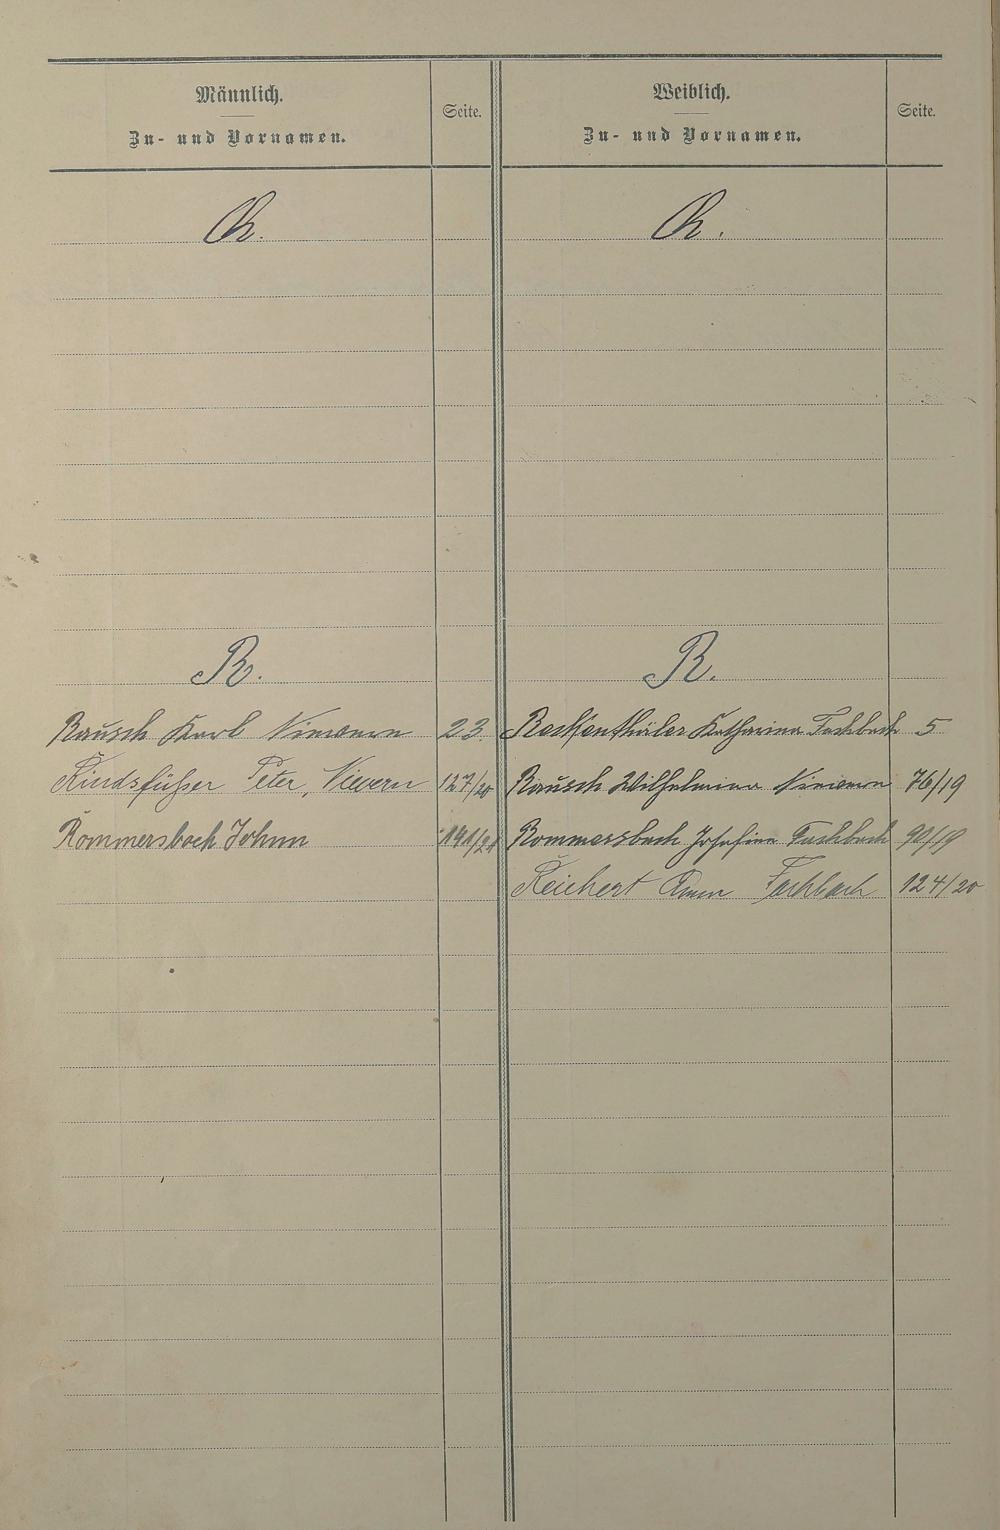 Männlich.
Zu- und Vornamen.
Seite.
Weiblich.
Zu- und Vornamen.
Seite.
R.
R.
Rausch Karl Nievern 23.
Reckenthäler Katharina Fachbach 5
Kindsfüßer Peter, Nievern 127/20
Rausch Wilhelmina Nievern 76/19
Rommersbach Johann 141/21
Rommersbach Josefina Fachbach 90/19
Reichert Anna Fachbach 124/20